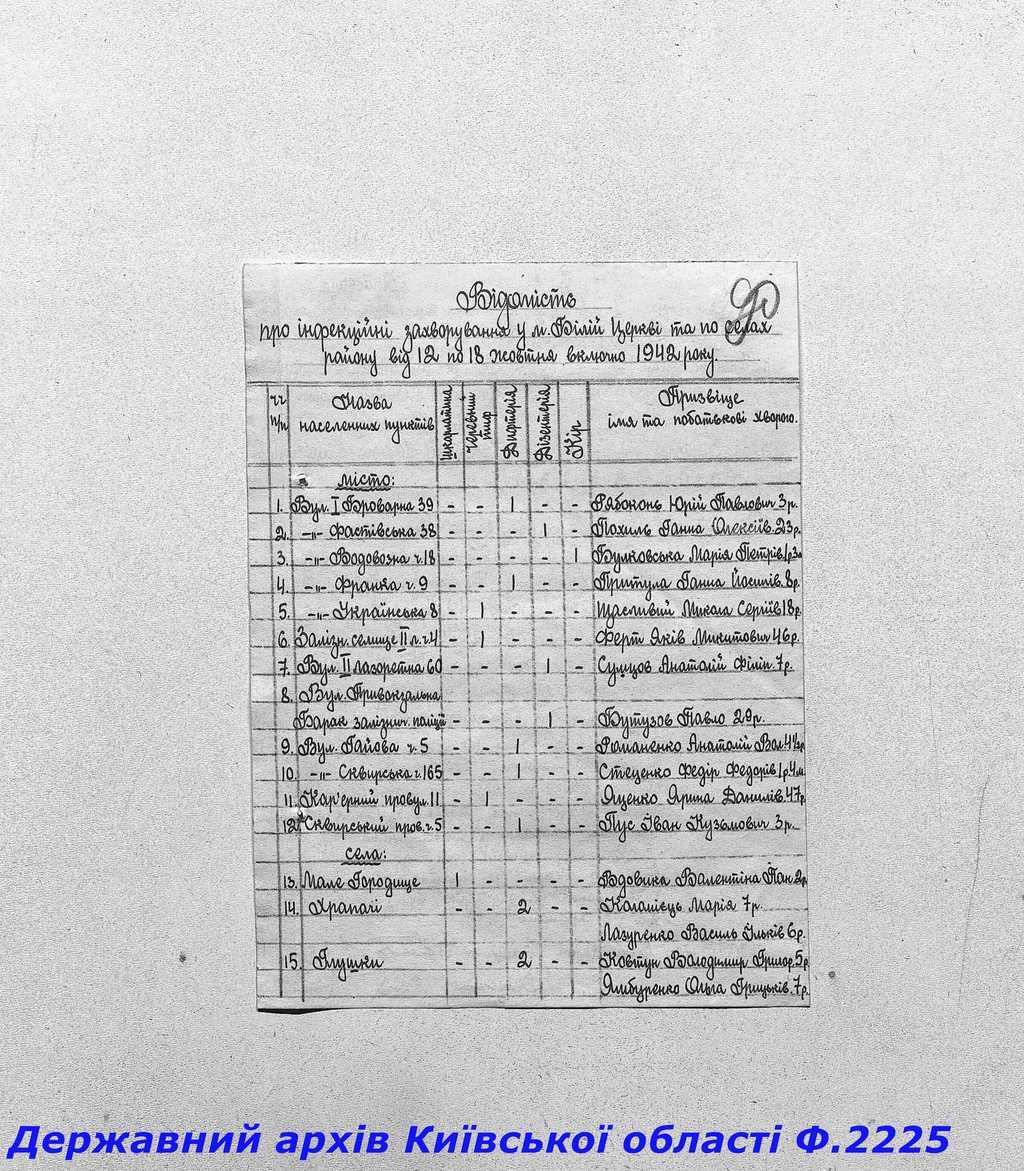 Відомість
про інфекційні захворування у м. Білій Церкві та по селах
району від 12 по 18 жовтня включно 1942 року.
90
чч п/п
Назва населенних пунктів
Шкарлатина
Черевний тиф
Дифтерія
Дізентерія
Кір
Призвіще імя та побатькові хворого.
місто:
1. Вул. I Броварна 39 - - 1 - - Рябоконь Юрій Павлович 3 р.
2. -"- Фастівська 38 - - - 1 - Похиль Ганна Олексіїв. 23 р.
3. -"- Водовозна ч. 18 - - - - 1 Булковська Марія Петрів. 1 р. 3 м
4. -"- Франка ч. 9 - - 1 - - Притула Ганна Йосипів. 8 р.
5. -"- Українська 8 - 1 - - - Щасливий Микола Сергіїв 18 р.
6. Залізн. селище II л. ч. 4 - 1 - - - Ферт Яків Микитович 46 р.
7. Вул. II Лазоретна 60 - - - 1 - Сумцов Анатолій Філіп. 7 р.
8. Вул. Привокзальна
Барак залізнич. поліції - - - 1 - Бутузов Павло 29 р.
9. Вул. Гайова ч. 5 - - 1 - - Романенко Анатолій Вол. 4½ р.
10. -"- Сквирська ч. 165 - - 1 - - Стеценко Федір Федорів 1 р. 4 м.
11. Кар'єрний провул. 11 - 1 - - - Яценко Ярина Данилів. 47 р.
12. Сквирський пров. ч. 5 - - 1 - - Пус Іван Кузьмович 3 р.
села:
13. Мале Городище 1 - - - - Вдовика Валентіна Пан. 2 р.
14. Храпачі - - 2 - - Коломієць Марія 7 р.
Лазуренко Василь Ільків 6 р.
15. Глушки - - 2 - - Ковтун Володимир Григор. 5 р.
Ямбуренко Ольга Грицьків. 7 р.
Державний архів Київської області Ф.2225